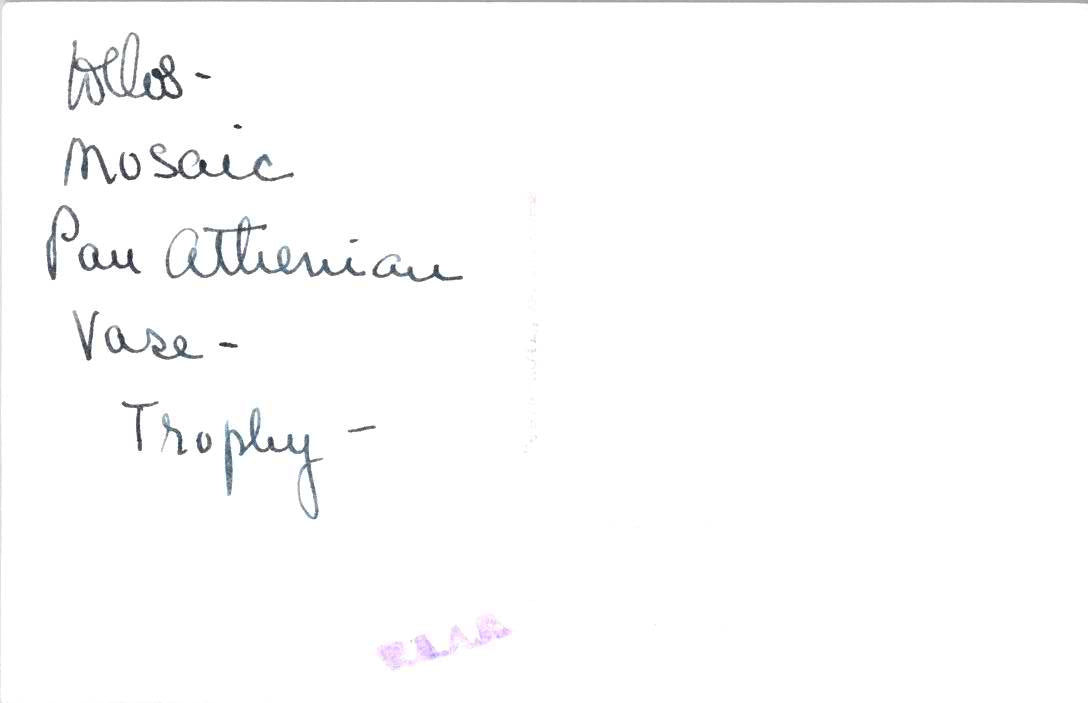 Delos -
Mosaic
Pan Athenian
Vase -
Trophy -